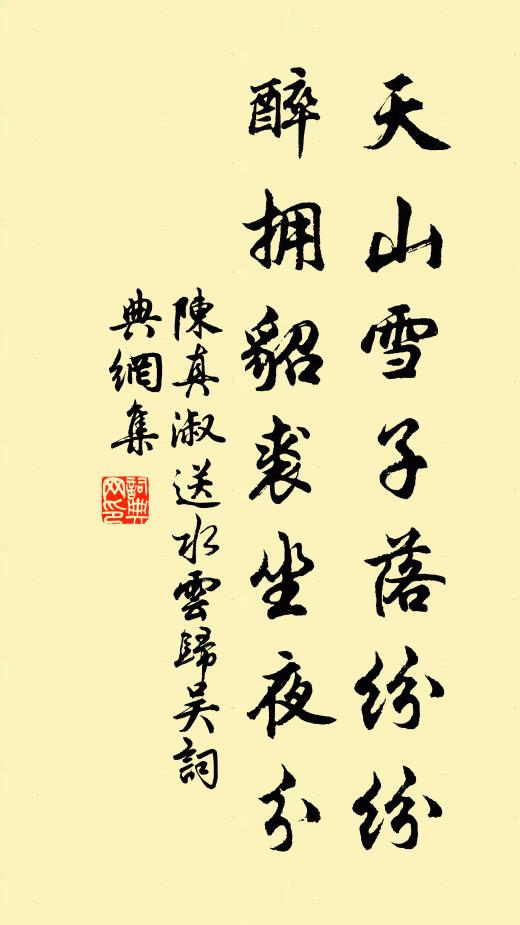 天山雪子落紛紛
醉拥貂裘坐夜分
陳真淑送水雲歸吴詞
典網集
詞典網印